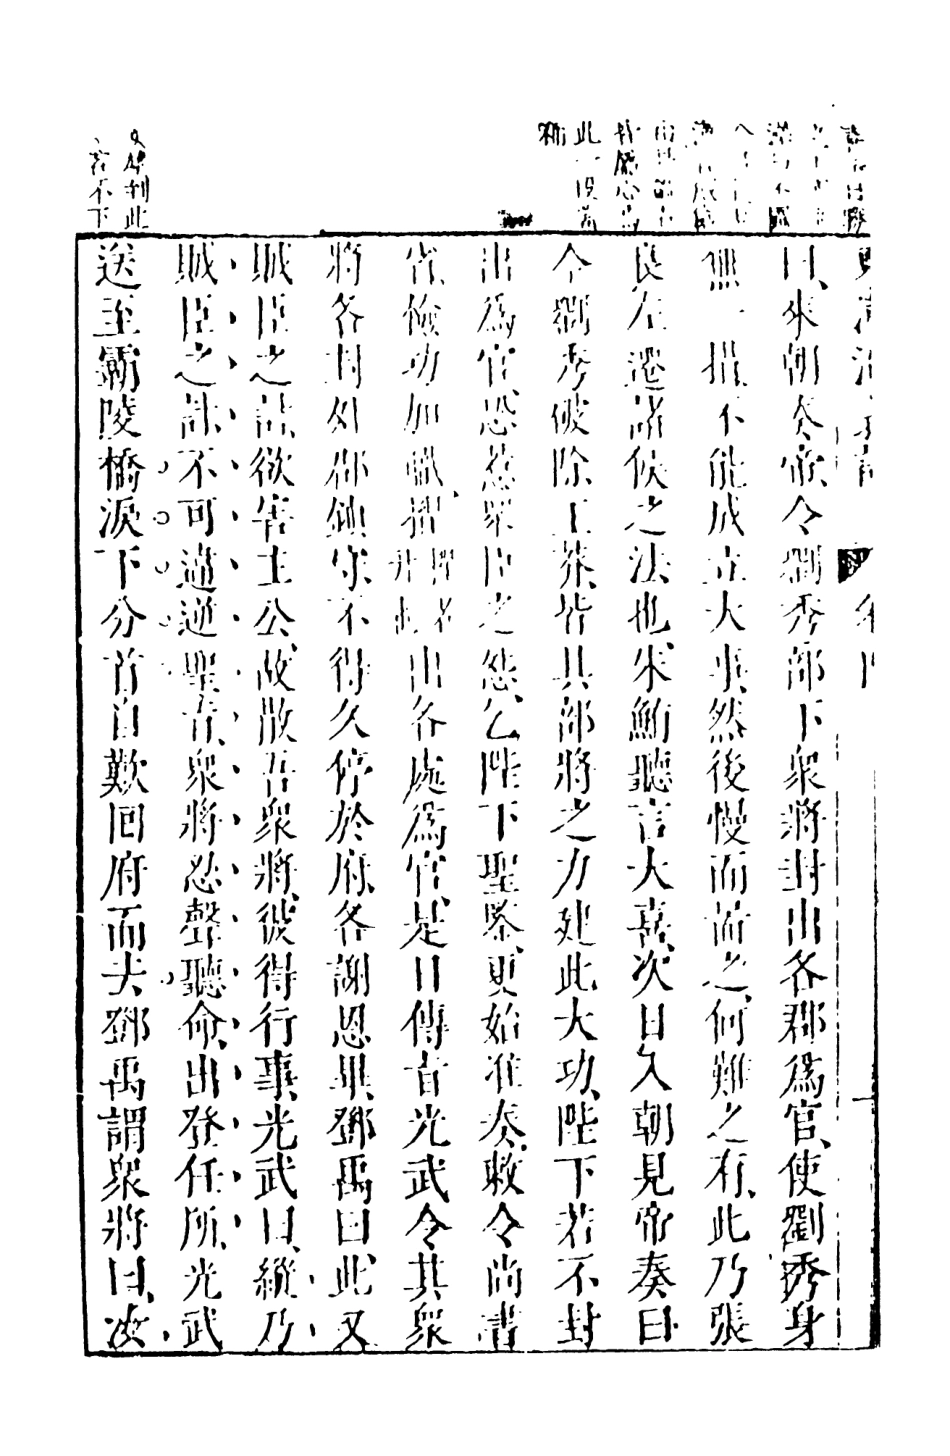 日來朝奏帝令劉秀部下衆將封出各郡爲官使劉秀身
無一措不能成立大事然後慢而啚之何難之有此乃張
良左遷諸侯之法也朱鮪聽言大喜次日入朝見帝奏曰
今劉秀破除王莽皆其部將之力建此大功陛下若不封
出爲官恐惹衆臣之怨乞陛下聖鑒更始准奏敕令尚書
省儉功加職擢出各處爲官是日傳旨光武令其衆
將各封外郡鎮守不得久停於府各謝恩畢鄧禹曰此又
賊臣之詰欲害主公故散吾衆將彼得行事光武曰縱乃
賊臣之計不可違逆聖旨衆將忍聲聽命出登任所光武
送至霸陵橋淚下分首自歎回府而去鄧禹謂衆將曰汝